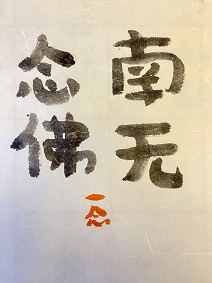 南无
念佛
一念